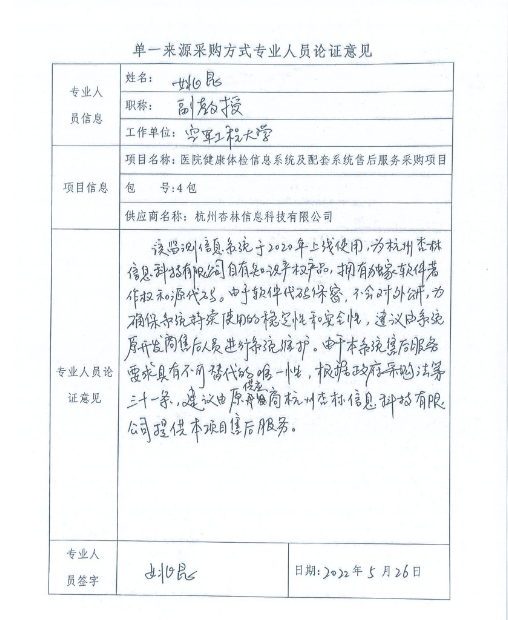 单一来源采购方式专业人员论证意见
专业人
员信息
姓名：姚昆
职称：副教授
工作单位：空军工程大学
项目信息
项目名称：医院健康体检信息系统及配套系统售后服务采购项目
包　　号：4包
供应商名称：杭州杏林信息科技有限公司
专业人员论
证意见
该监测信息系统于2020年上线使用，为杭州杏林
信息科技有限公司自有知识产权产品，拥有独家软件著
作权和源代码。由于软件代码保密，不会对外公开，为
确保系统持续使用的稳定性和安全性，建议由系统
原开发商售后人员进行系统维护。由于本系统售后服务
要求具有不可替代的唯一性，根据政府采购法第
三十一条，建议由原供应商杭州杏林信息科技有限
公司提供本项目售后服务。
专业人
员签字
姚昆
日期：2022年5月26日